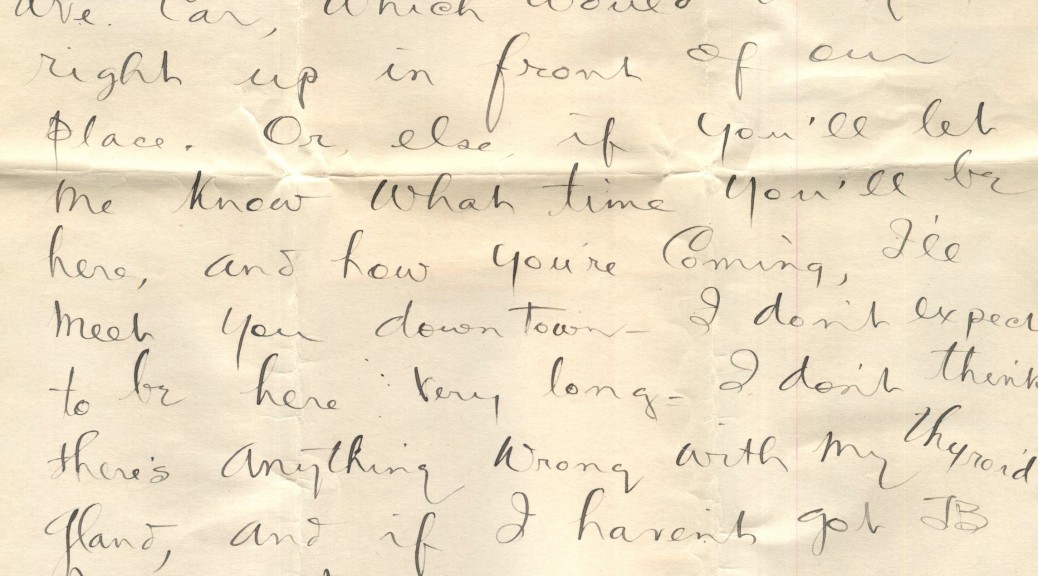 Ave. Car, which would
right up in front of our
place. Or else if you'll let
me know what time you'll be
here, and how you're coming, I'll
meet you down town - I don't expect
to be here very long - I don't think
there's anything wrong with my thyroid
gland, and if I haven't got TB